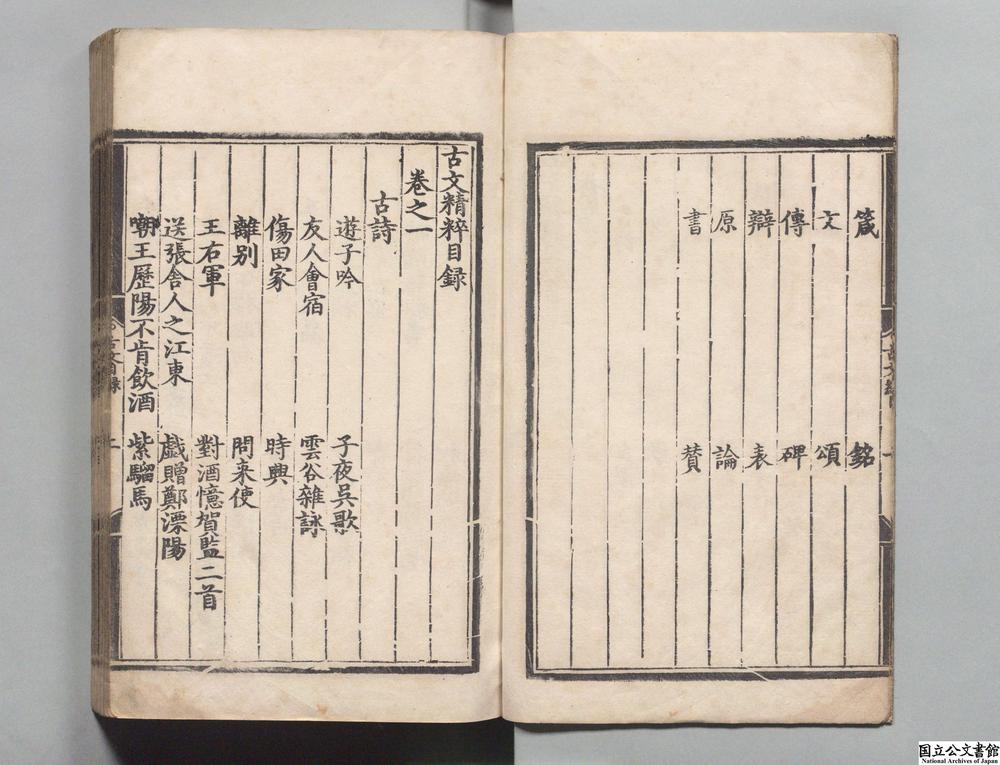 箴　銘
文　頌
傳　碑
辯　表
原　論
書　賛
古文精粹目録
卷之一
古詩
遊子吟　子夜吳歌
友人會宿　雲谷雜詠
傷田家　時興
離別　問来使
王右軍　對酒憶賀監二首
送張舎人之江東　戯贈鄭溧陽
嘲王歷陽不肯飲酒　紫騮馬
国立公文書館
National Archives of Japan